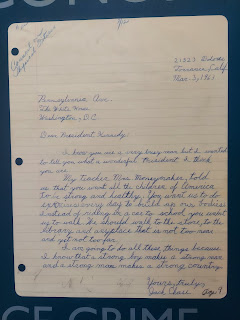 Torrance, Calif.
Mar. 3, 1961
Pennsylvania Ave.
The White House
Washington, D.C.
Dear President Kennedy,
I know you are a very busy man but I wanted
to tell you what a wonderful President I think
you are.
My teacher Miss Moneymaker, told
us that you want all the children of America
to be strong and healthy. You want us to do
exercises every day to build up our bodies.
Instead of riding in a car to school, you want
us to walk. We should walk to the store, to the
library, and any place that is not too near
and yet not too far.
I am going to do all these things because
I know that a strong boy makes a strong man
and a strong man makes a strong country.
Yours truly,
Jack Chase
age 9